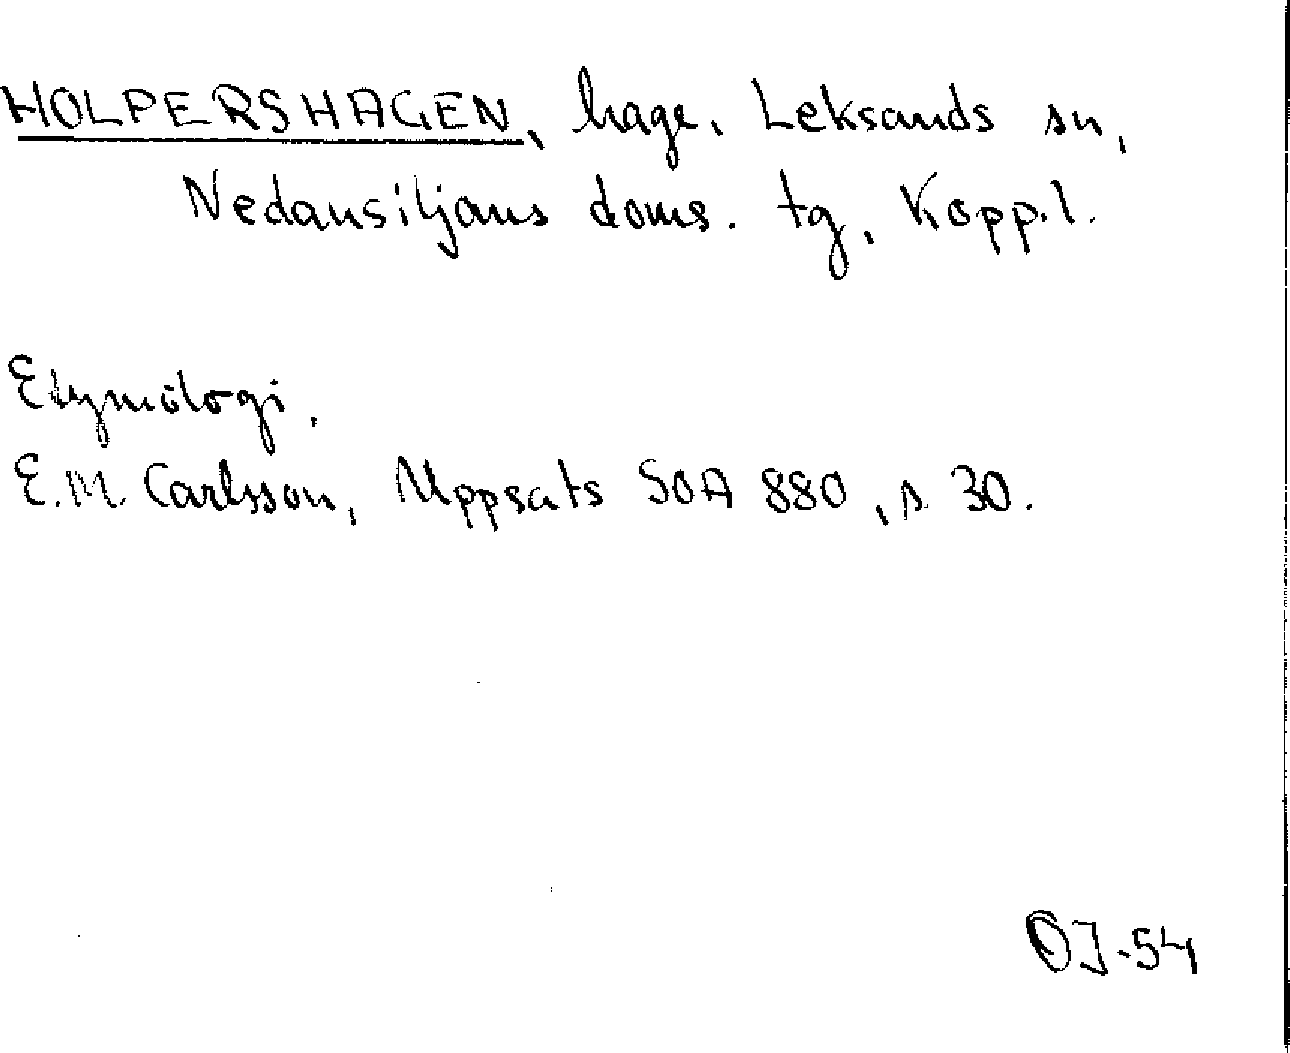 HOLPERSHAGEN, hage, Leksands sn,
Nedansiljans doms. tg, Kopp.l.
Etymologi.
E.M. Carlsson, Uppsats SOA 880, s 30.
OJ-54